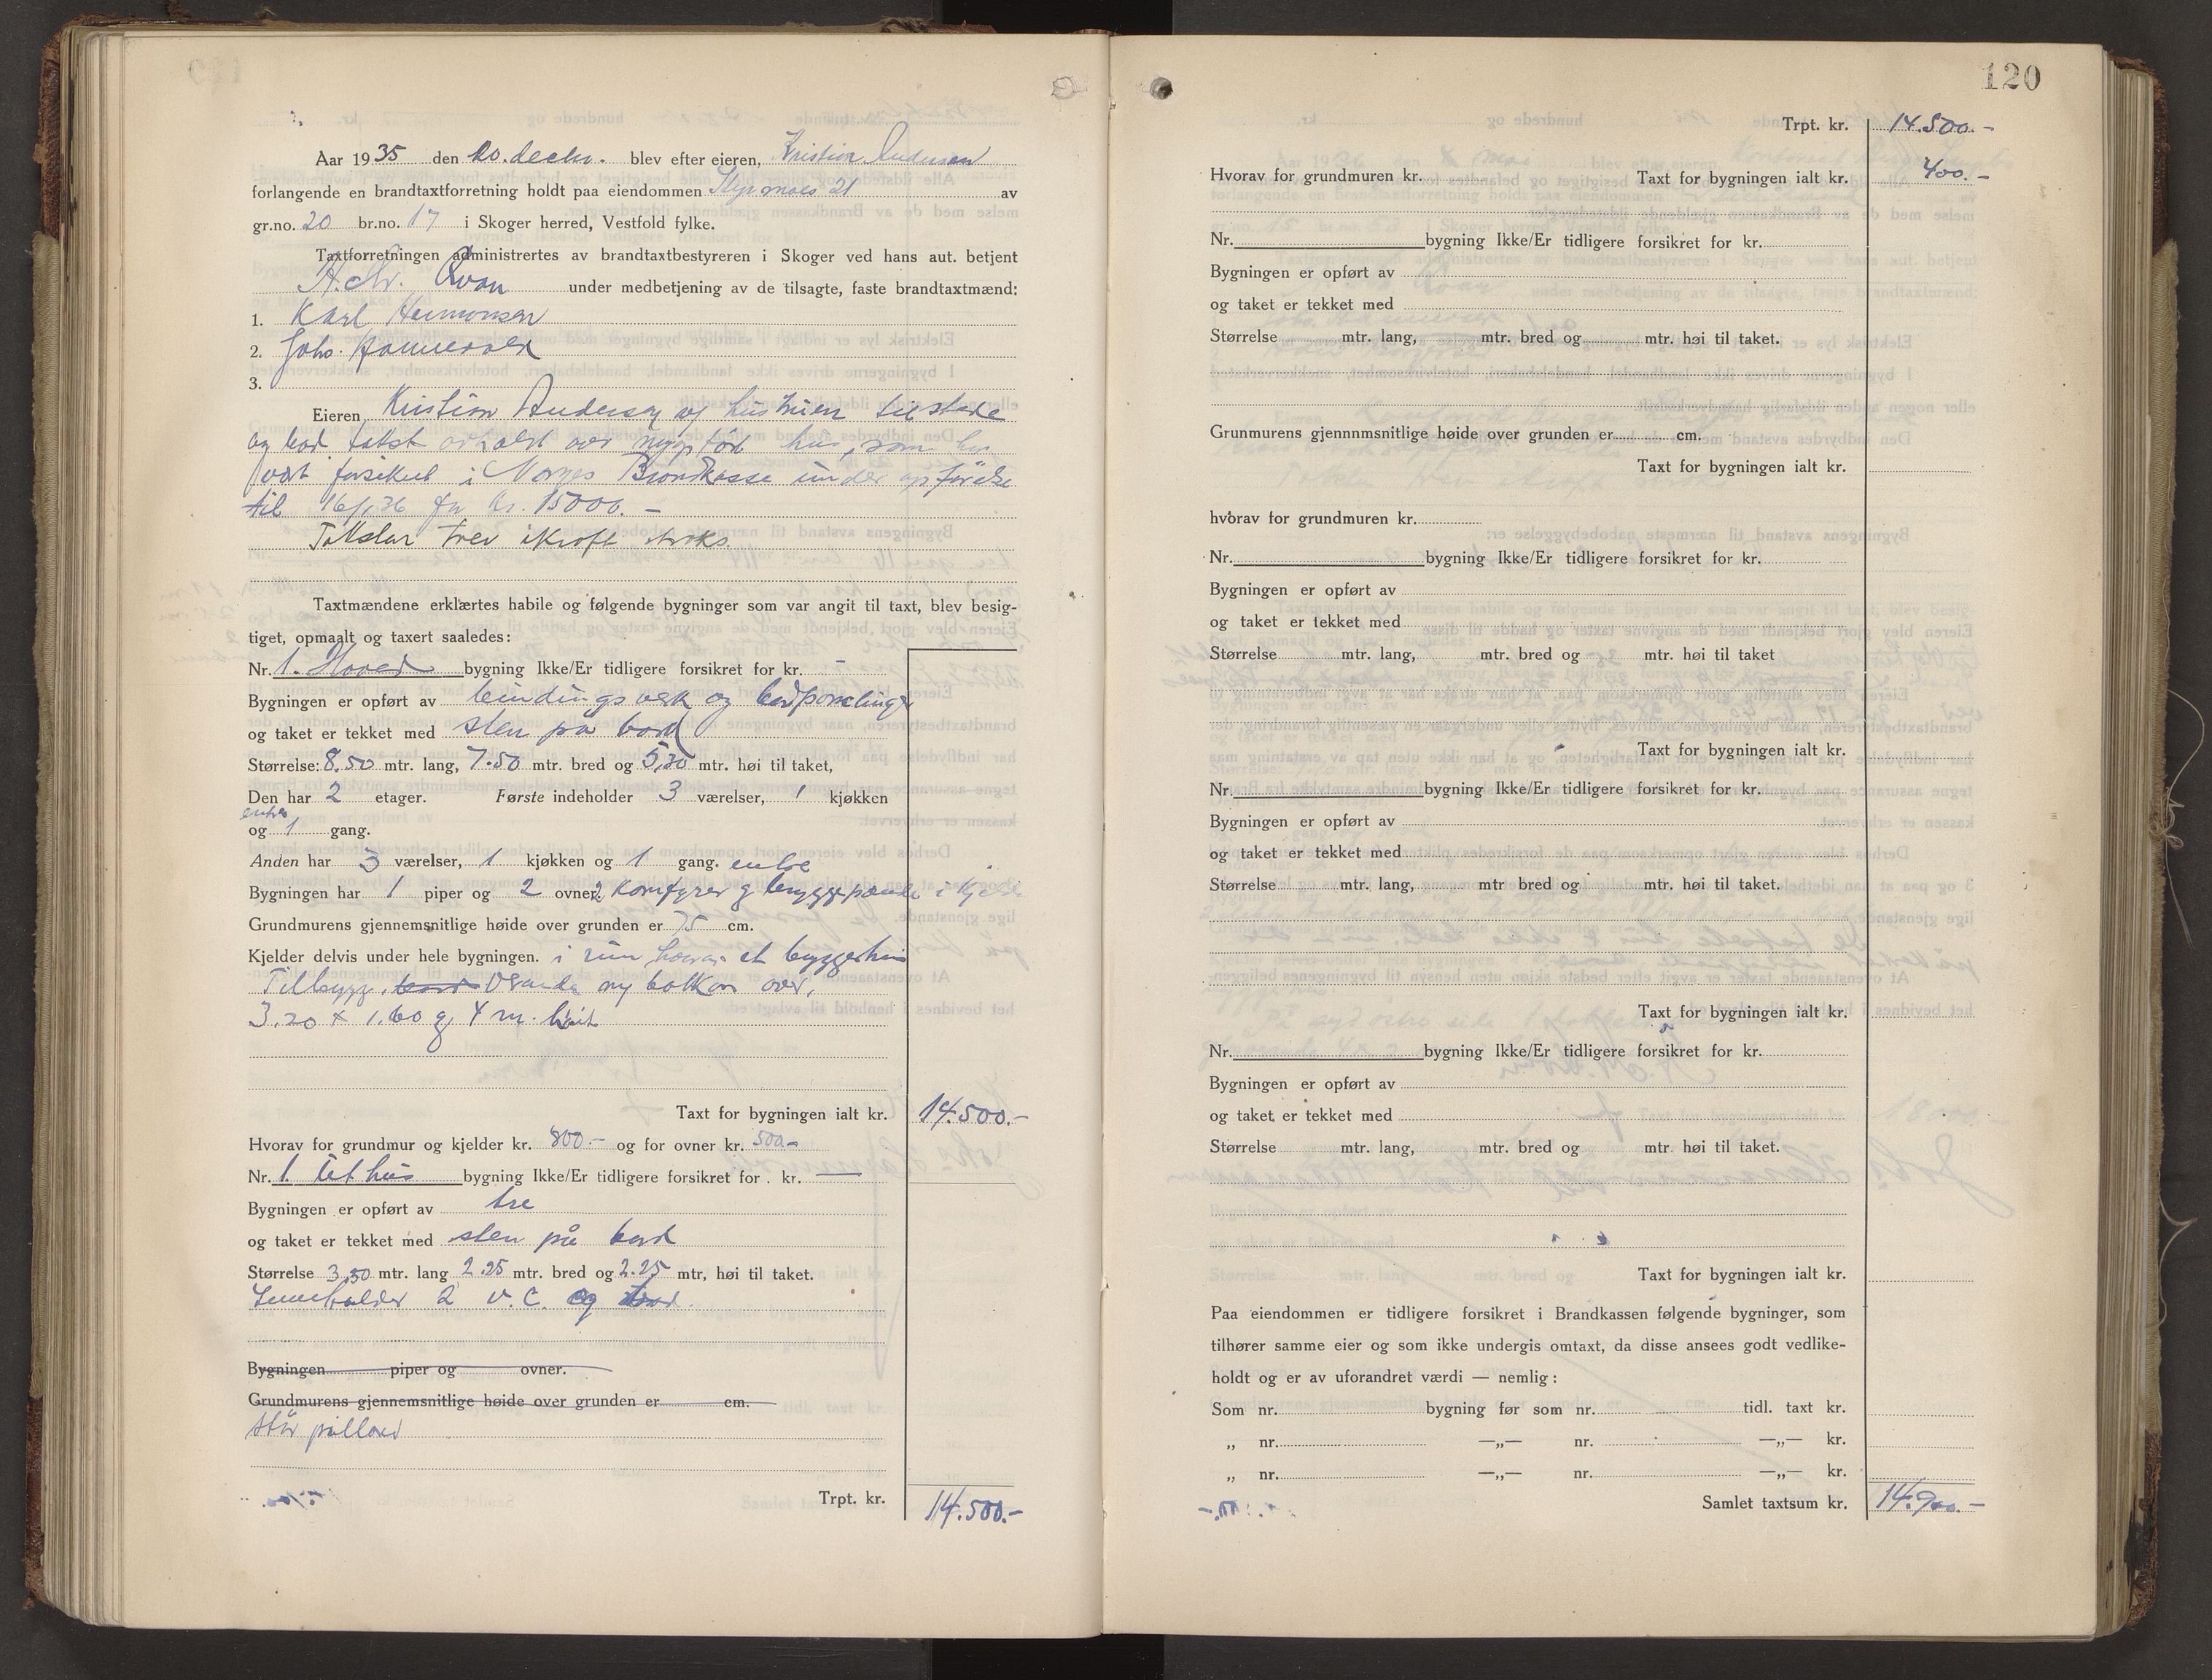 Aar 1935 den 20. decbr. blev efter eieren, Kristian Andersen
forlangende en brandtaxtforretning holdt paa eiendommen 21 av
gr.no. 20 br.no. 17 i Skoger herred, Vestfold fylke.
Taxtforretningen administrertes av brandtaxtbestyreren i Skoger ved hans aut. betjent
H. Chr. under medbetjening av de tilsagte, faste brandtaxtmænd:
1. Karl Hermansen
2. Johs. Hannevold
3.
Eieren Kristian Andersen og hustruen tilstede
og bad takst avholdt over nyopført hus, som
vært forsikret i Norges Brandkasse under opførelse
til 16/1 36 for kr. 15000.-
Taksten trer ikraft straks.
Taxtmændene erklærtes habile og følgende bygninger som var angit til taxt, blev besig-
tiget, opmaalt og taxert saaledes:
Nr. 1. Hoved bygning Ikke/Er tidligere forsikret for kr. -
Bygningen er opført av bindingsverk og
og taket er tekket med sten på bord
Størrelse: 8.50 mtr. lang, 7.50 mtr. bred og 5,30 mtr. høi til taket,
Den har 2 etager. Første indeholder 3 værelser, 1 kjøkken
entre
og 1 gang.
Anden har 3 værelser, 1 kjøkken og 1 gang. entre
Bygningen har 1 piper og 2 ovner. 2 komfyrer og bryggepanne i kjeller
Grundmurens gjennemsnitlige høide over grunden er 75 cm.
Kjelder delvis under hele bygningen. i rum et bryggerhus
Tilbygg. veranda balkon over,
3.20 x 1.60 og 4 m. høit
Taxt for bygningen ialt kr. 14.500.-
Hvorav for grundmur og kjelder kr. 800.- og for ovner kr. 500.-
Nr. 1. Uthus bygning Ikke/Er tidligere forsikret for . kr. —
Bygningen er opført av tre
og taket er tekket med sten på bord
Størrelse 3,50 mtr. lang 2.25 mtr. bred og 2.25 mtr, høi til taket.
Inneholder 2 v. c. og
Bygningen piper og ovner.
Grundmurens gjennemsnitlige høide over grunden er cm.
står pillarer
Trpt. kr. 14.500.-
120
Trpt. kr. 14.500.-
Hvorav for grundmuren kr. Taxt for bygningen ialt kr. 400.-
Nr. bygning Ikke/Er tidligere forsikret for kr.
Bygningen er opført av
og taket er tekket med
Størrelse mtr. lang, mtr. bred og mtr. høi til taket.
Grunmurens gjennnmsnitlige høide over grunden er cm.
Taxt for bygningen ialt kr.
hvorav for grundmuren kr.
Nr. bygning Ikke/Er tidligere forsikret for kr.
Bygningen er opført av
og taket er tekket med
Størrelse mtr. lang, mtr. bred og mtr. høi til taket
Taxt for bygningen ialt kr.
Nr. bygning Ikke/Er tidligere forsikret for kr.
Bygningen er opført av
og taket er tekket med
Størrelse mtr. lang, mtr bred og mtr. høi til taket.
Taxt for bygningen ialt kr.
Nr. bygning Ikke/Er tidligere forsikret for kr.
Bygningen er opført av
og taket er tekket med
Størrelse mtr. lang, mtr. bred og mtr. høi til taket.
Taxt for bygningen ialt kr.
Paa eiendommen er tidligere forsikret i Brandkassen følgende bygninger, som
tilhører samme eier og som ikke undergis omtaxt, da disse ansees godt vedlike-
holdt og er av uforandret værdi — nemlig:
Som nr. bygning før som nr. tidl. taxt kr.
„ nr. —„— nr. —„— kr.
„ nr. —„— nr. —„— kr.
Samlet taxtsum kr. 14.900.-